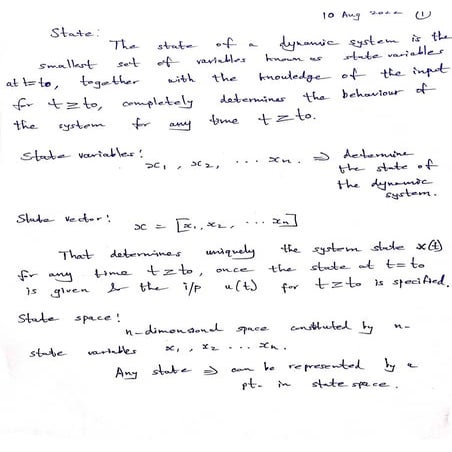 10 Aug 2022 (1)
State:
The state of a dynamic system is the
smallest set of variables known as state variables
at t=to, together with the knowledge of the input
for t ≥ to, completely determines the behaviour of
the system for any time t ≥ to.
State variables:
x₁, x₂, ... xn. ⇒ determine
the state of
the dynamic
system.
State vector:
x = [x₁, x₂, ... xn]
That determines uniquely the system state x(t)
for any time t ≥ to, once the state at t=to
is given & the i/p u(t) for t ≥ to is specified.
State space:
n-dimensional space constituted by n-
state variables x₁, x₂ ... xn.
Any state ⇒ can be represented by a
pt. in state space.